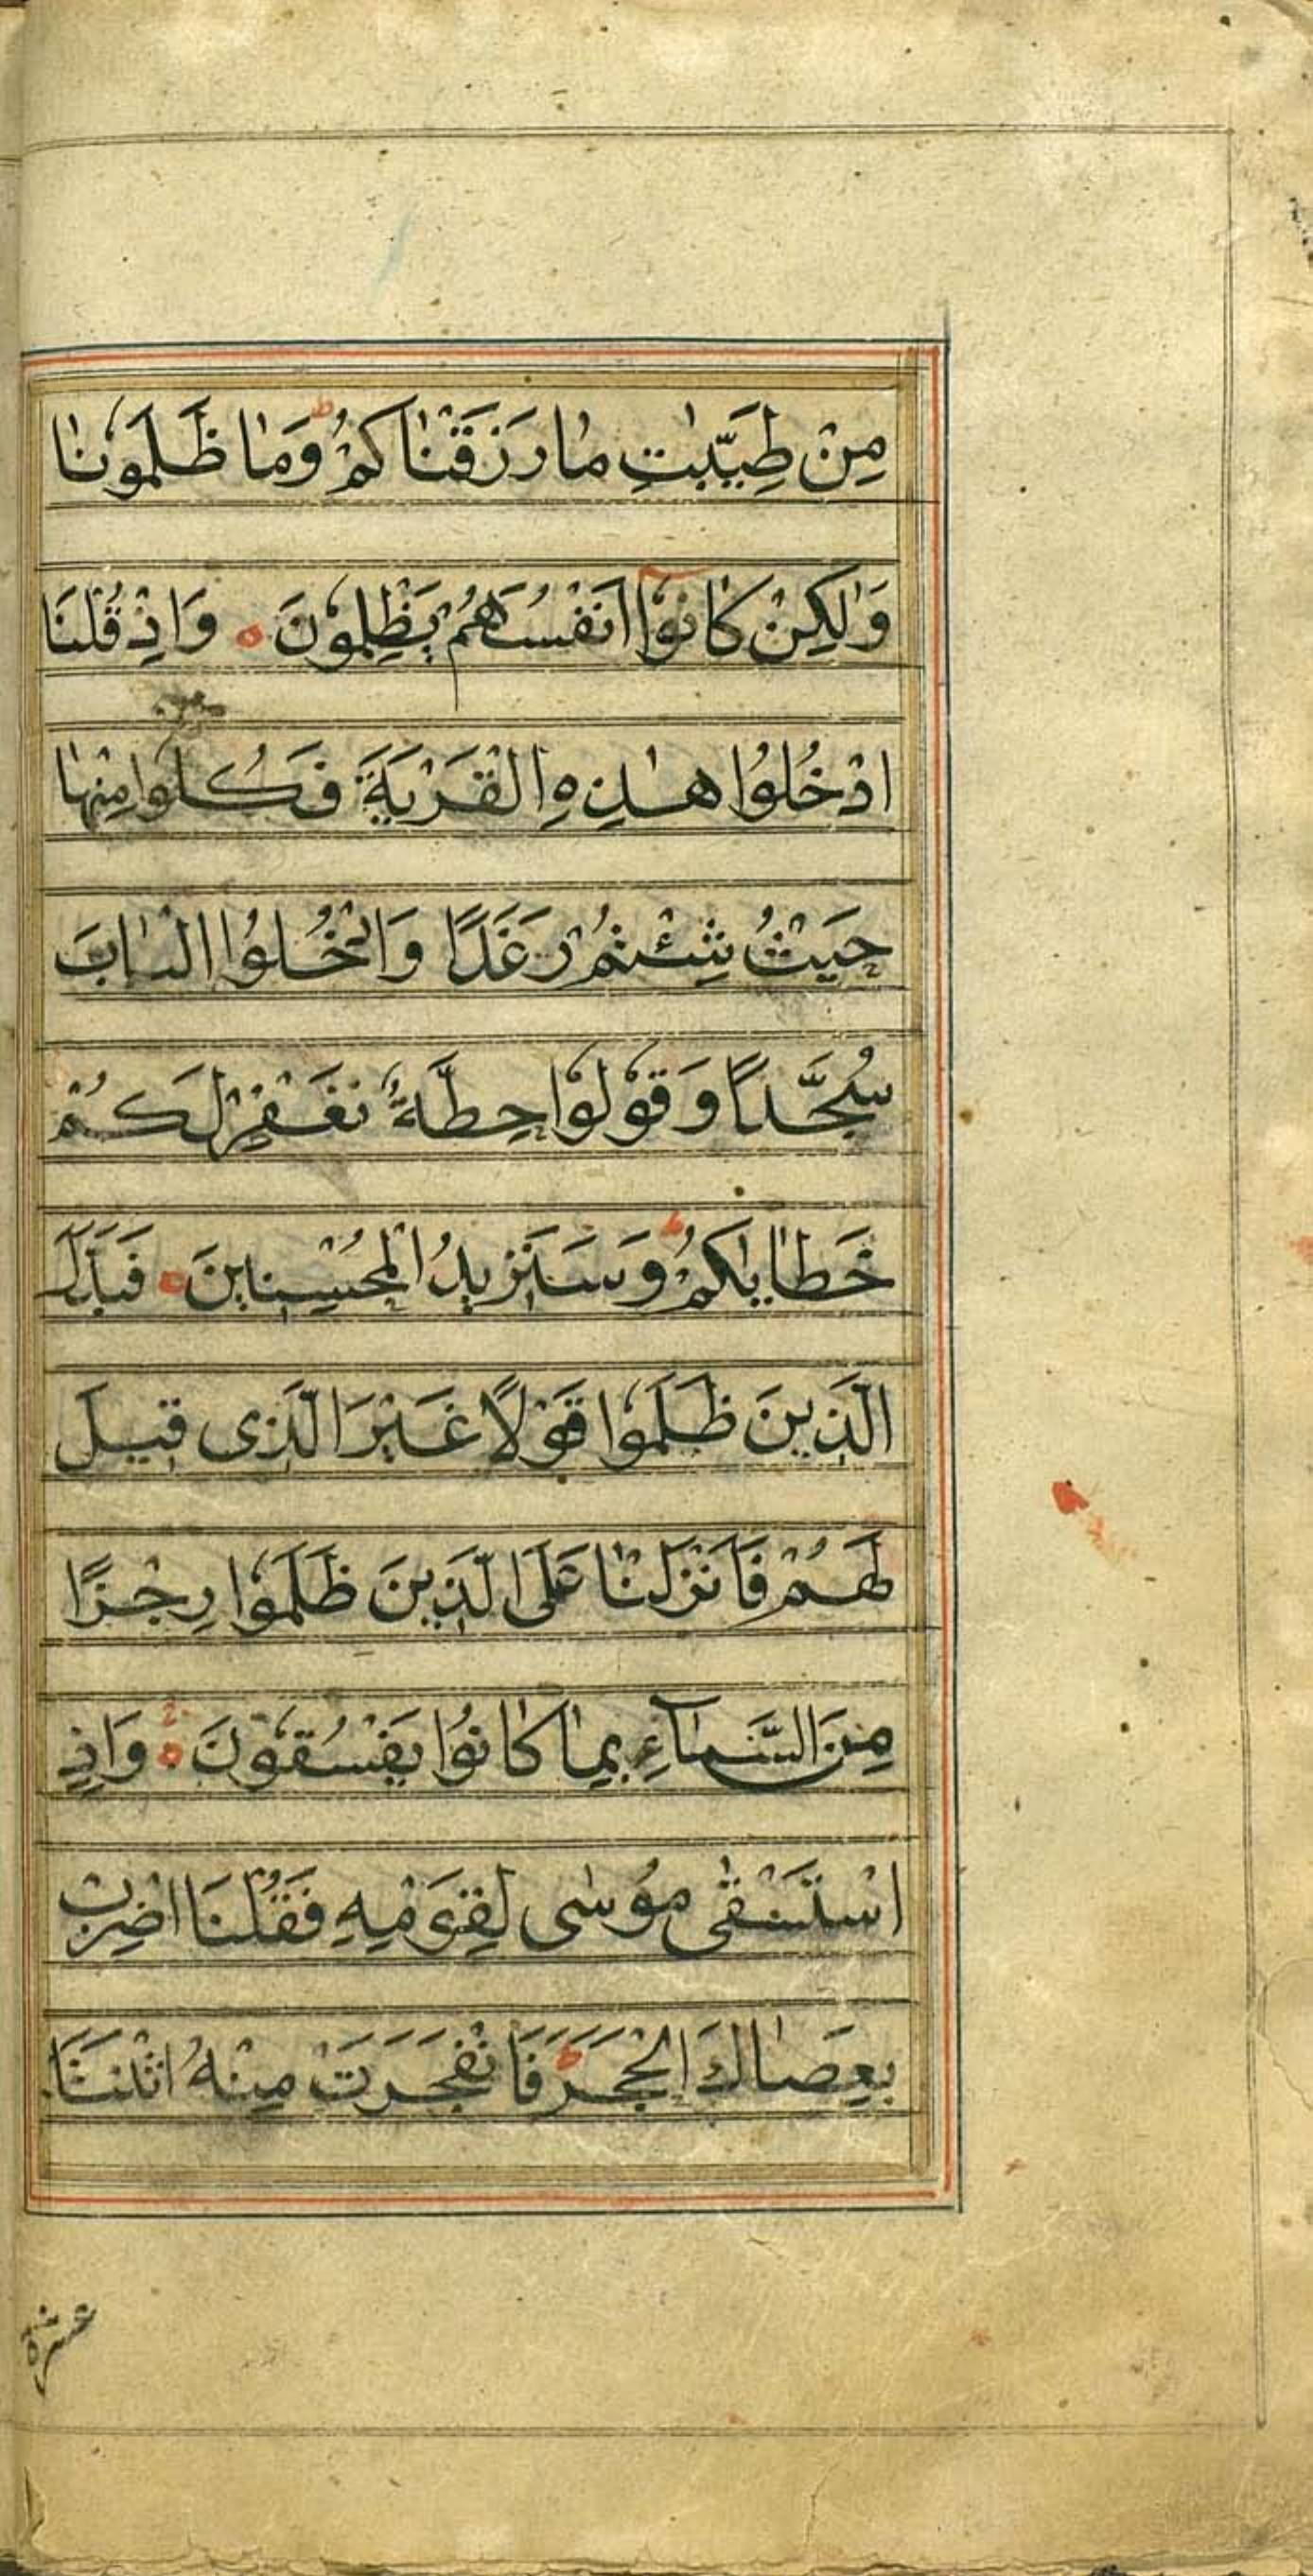 مِنْ طَيِّبٰتِ مٰا رَزَقْنٰاكُمْ ط وَمٰا ظَلَمُونٰا
وَلٰكِنْ كٰانُوٓا اَنْفُسَهُمْ يَظْلِمُونَ ه وَاِذْ قُلْنَا
ادْخُلُوا هٰذِهِ الْقَرْيَةَ فَكُلُوا مِنْهٰا
حَيْثُ شِئْتُمْ رَغَدًا وَادْخُلُوا الْبٰابَ
سُجَّدًا وَقُولُوا حِطَّةٌ نَغْفِرْ لَكُمْ
خَطٰايٰكُمْ ط وَسَنَزِيدُ الْمُحْسِنِينَ ه فَبَدَّلَ
الَّذِينَ ظَلَمُوا قَوْلًا غَيْرَ الَّذِى قِيلَ
لَهُمْ فَاَنْزَلْنٰا عَلَى الَّذِينَ ظَلَمُوا رِجْزًا
مِنَ السَّمٰآءِ بِمٰا كٰانُوا يَفْسُقُونَ ه وَاِذِ
اسْتَسْقٰى مُوسٰى لِقَوْمِهِ فَقُلْنَا اضْرِبْ
بِعَصٰاكَ الْحَجَرَ ط فَانْفَجَرَتْ مِنْهُ اثْنَتَا
عشرة